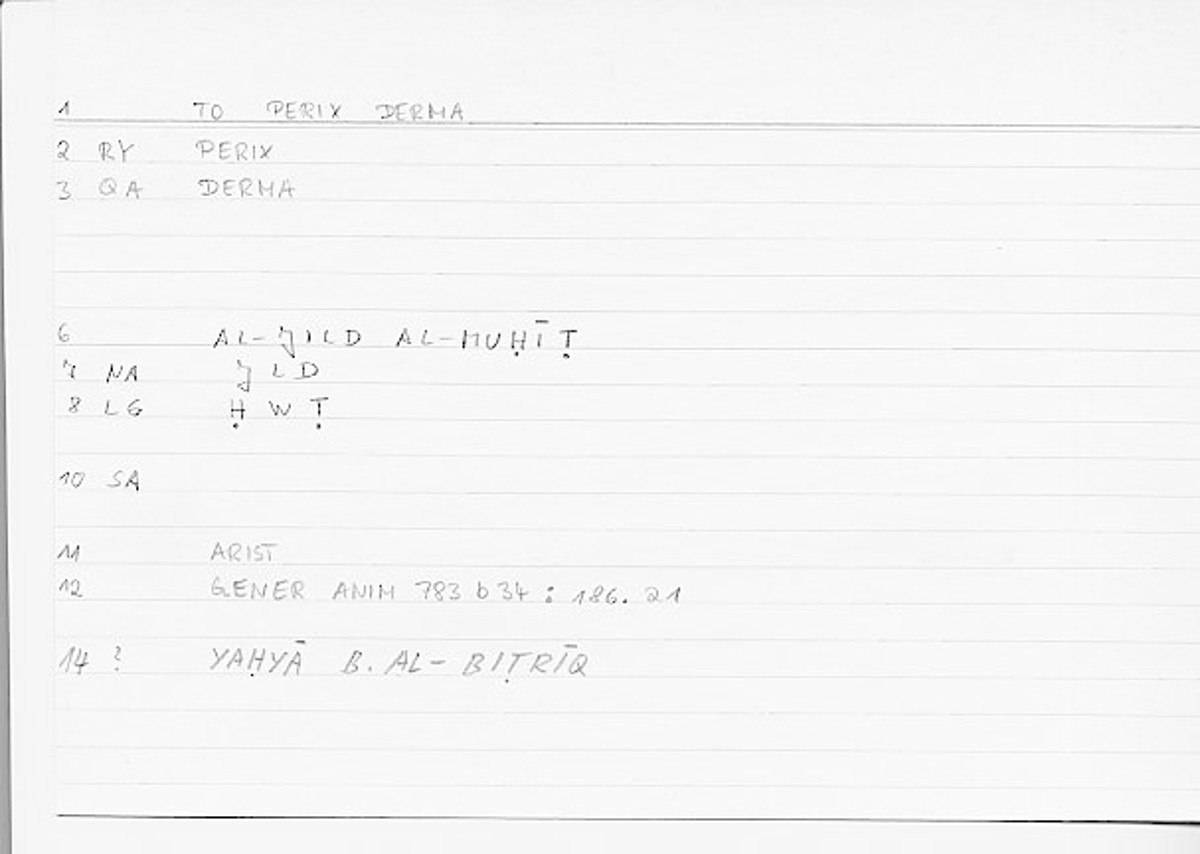 1 TO PERIX DERMA
2 RY PERIX
3 QA DERMA
6 AL-JILD AL-MUḤĪṬ
7 NA JLD
8 LG ḤWṬ
10 SA
11 ARIST
12 GENER ANIM 783 b 34 : 186. 21
14 ? YAḤYĀ B. AL-BIṬRĪQ